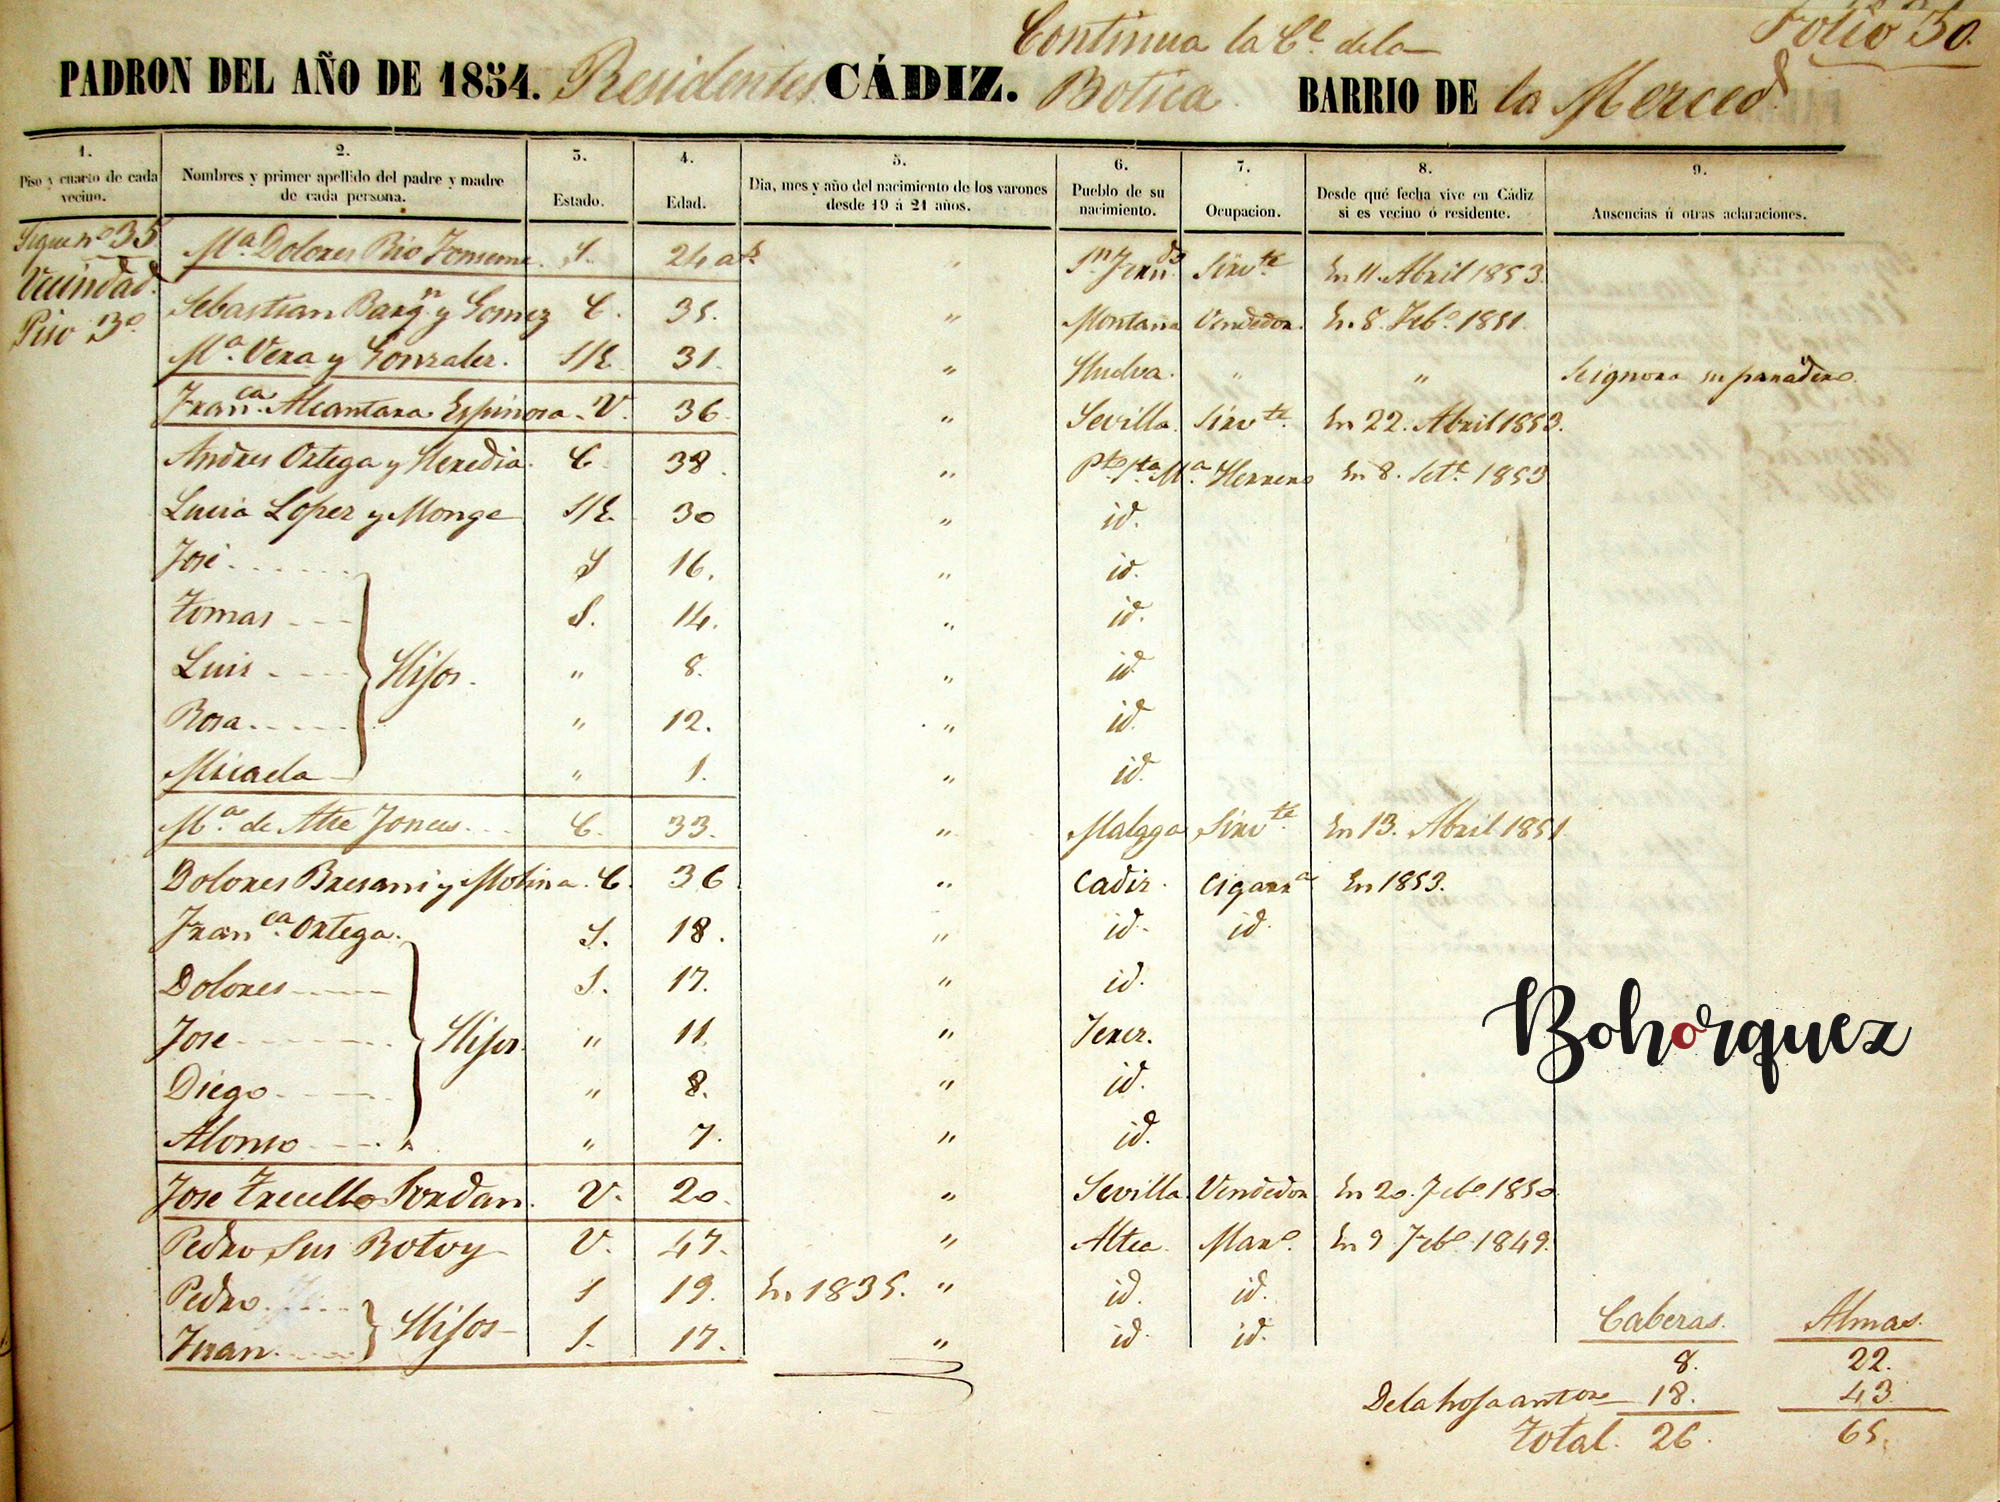 Continua la C.e de la
Folio 30.
PADRON DEL AÑO DE 1854. Residentes CÁDIZ. Botica BARRIO DE la Merced
1. 2. 3. 4. 5. 6. 7. 8. 9.
Piso y cuarto de cada vecino. Nombres y primer apellido del padre y madre de cada persona. Estado. Edad. Dia, mes y año del nacimiento de los varones desde 19 á 21 años. Pueblo de su nacimiento. Ocupacion. Desde qué fecha vive en Cádiz si es vecino ó residente. Ausencias ú otras aclaraciones.
Sigue nº 35 Mª Dolores Rio S. 24 a.s " S.n Fern.do Sirv.te En 11. Abril 1853.
Vecindad.
Piso 3º Sebastian Barg.n y Gomez C. 35. " Montaña Vendedor. En 8. Feb.o 1851.
Mª. Vera y Gonzalez. S/E. 31. " Huelva. " " Se ignora su paradero.
Fran.ca Alcantara Espinosa. V. 36. " Sevilla. Sirv.te En 22. Abril 1853.
Andres Ortega y Heredia. C. 38. " P.to S.ta M.a Herrero En 8. Set.e 1853
Lucia Lopez y Monge S/E. 30 " id.
José S 16. " id.
Tomas S. 14. " id.
Luis " 8. " id
Hijos.
Rosa " 12. " id.
Micaela " 1. " id.
Mª. de C. 33. " Malaga Sirv.te En 13. Abril 1851.
Dolores Bresani y Molina. C. 36 " Cadiz. Cigarr.a En 1853.
Fran.ca Ortega. S. 18. " id. id.
Dolores S. 17. " id.
Jose Hijos. " 11. " Jerez.
Diego " 8. " id.
Alonso " 7. " id.
Jose Jordan. V. 20. " Sevilla. Vendedor En 20. Feb.o 1850.
Pedro Sus Botoy V. 47. " Altea. Mar.o En 9 Feb.o 1849.
Pedro S 19. En 1835. " id. id.
Hijos
Juan S. 17. " id. id.
Cabezas. Almas.
8. 22.
De la hoja anter.or 18. 43.
Total. 26. 65.
Bohorquez